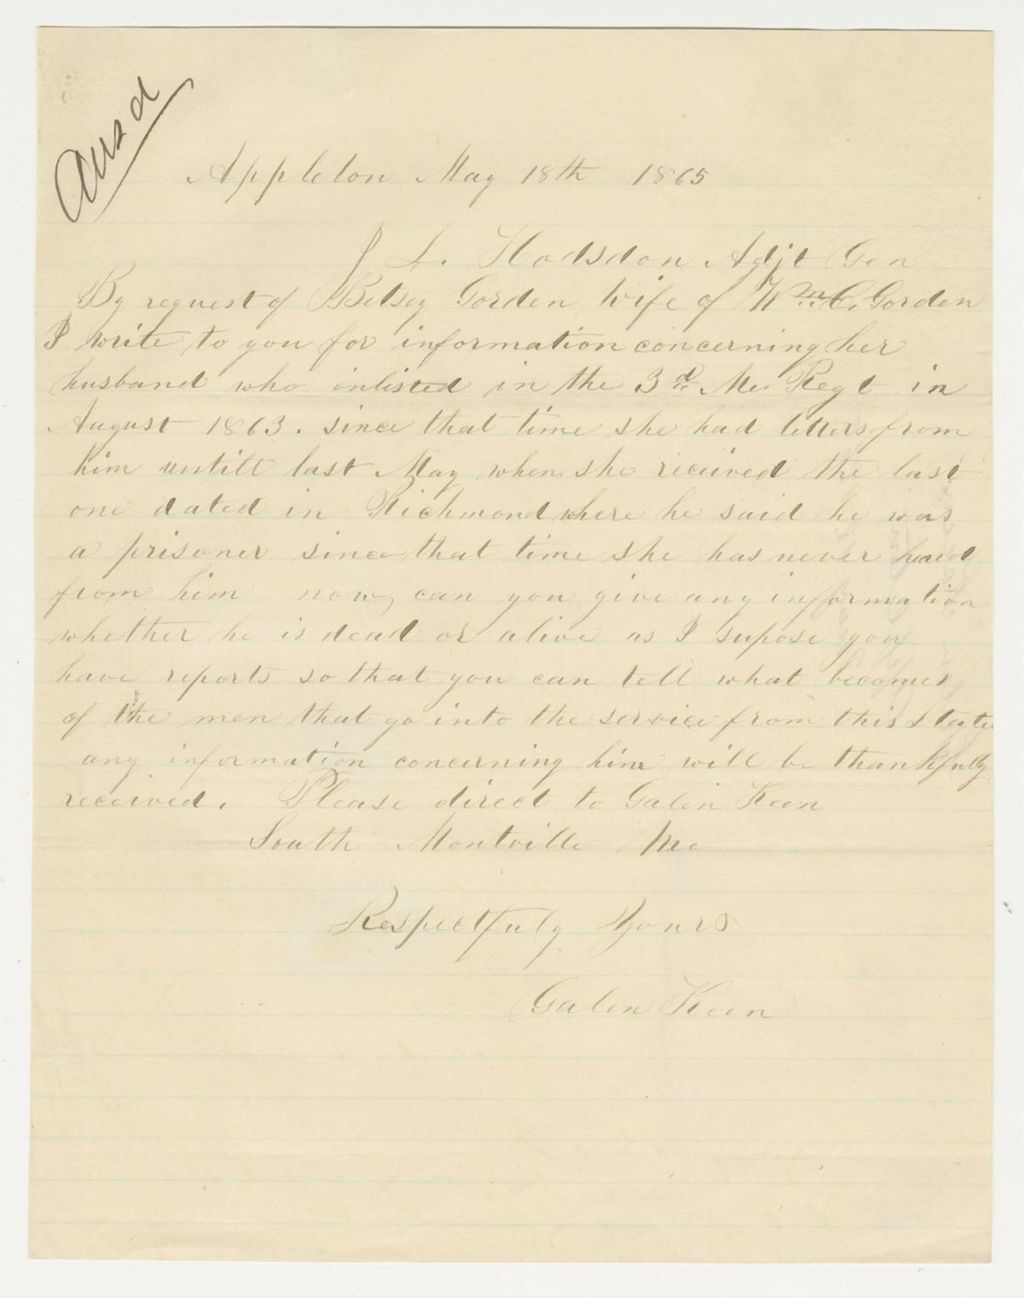 Ansd
Appleton May 18th 1865
J L. Hodsdon Adjt Gen
By request of Betsey Gorden wife of Wm C. Gorden
I write to you for information concerning her
husband who inlisted in the 3d Me Regt in
August 1863. since that time she had letters from
him untill last May when she received the last
one dated in Richmond where he said he was
a prisoner since that time she has never heard
from him now can you give any information
whether he is dead or alive as I supose you
have reports so that you can tell what becomes
of the men that go into the service from this State
any information concerning him will be thankfuly
received. Please direct to Galen Keen
South Montville Me
Respectfuly Yours
Galen Keen